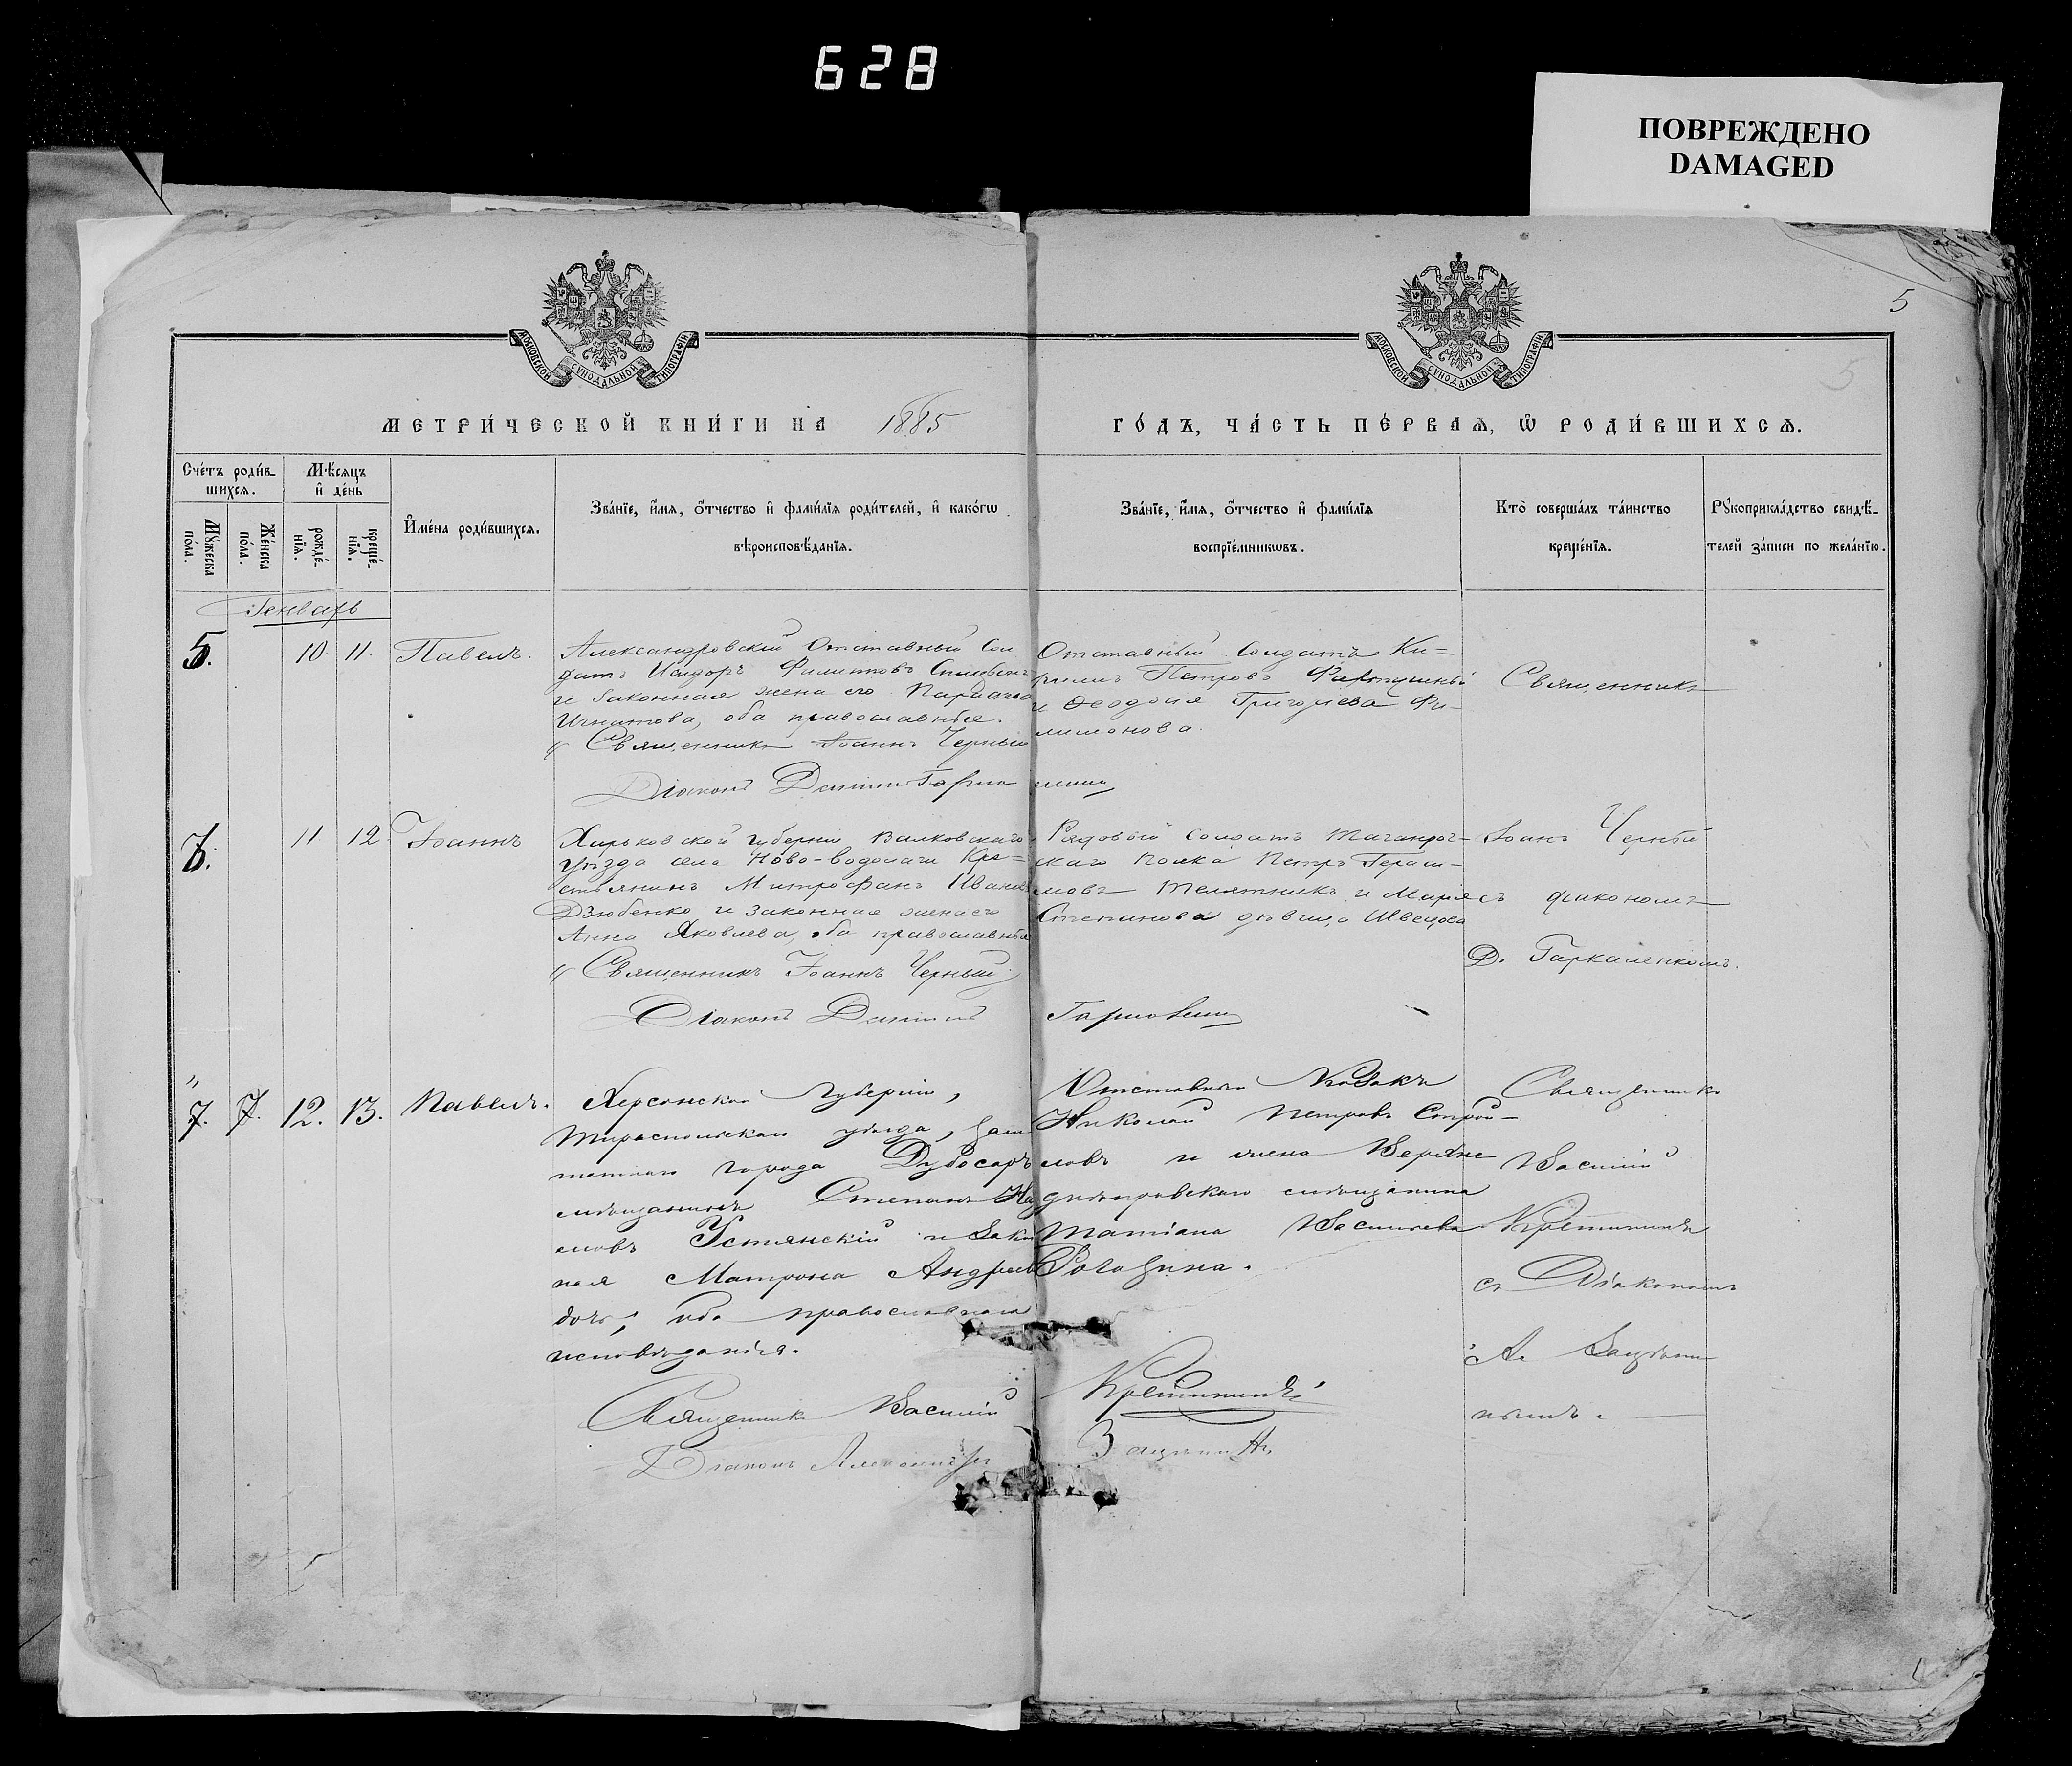 628
ПОВРЕЖДЕНО
DAMAGED
МОСКОВСКОЙ СѴНОДАЛЬНОЙ ТИПОГРАФІИ
МОСКОВСКОЙ СѴНОДАЛЬНОЙ ТИПОГРАФІИ
5
5
МЕТРИ́ЧЕСКОЙ КНИ́ГИ НА 1885
ГО́ДЪ, ЧА́СТЬ ПЕ́РВАѦ, Ѿ РОДИ́ВШИХСѦ.
Сче́тъ роди́в-
шихсѧ.
Мѣ́сѧцъ
и҆ де́нь
Мꙋ́жеска
по́ла.
Же́нска
по́ла.
рожде́-
нїѧ.
креще́-
нїѧ.
И҆мена̀ роди́вшихсѧ.
Зва́нїе, и҆́мѧ, ѻ҆́тчество и҆ фами́лїѧ роди́телей, и҆ како́гѡ
вѣроисповѣ́данїѧ.
Зва́нїе, и҆́мѧ, ѻ҆́тчество и҆ фами́лїѧ
воспрїе́мникѡвъ.
Кто̀ соверша́лъ та́инство
креще́нїѧ.
Рꙋкоприкла́дство свидѣ́-
телей за́писи по жела́нїю.
Генварь
5. 10. 11. Павелъ.
Александровскій Отставный Сол
датъ Исидоръ Филиповъ
и законная жена его Параскева
Игнатова, оба православные.
Священникъ Іоаннъ Черный
Діаконъ Даніилъ
Отставный Солдатъ Ки-
рилъ Петровъ
и Ѳеодосія Григорьева Фи-
лимонова.
Священникъ
6. 11 12 Іоаннъ
Харьковской губерніи Валковскаго
уѣзда села Ново-Водолаги Кре-
стьянинъ Митрофанъ Ивановъ
Дзюбенко и законная жена его
Анна Яковлева, оба православные
Священникъ Іоаннъ Черный
Діаконъ Даніилъ
Рядовый солдатъ Таганрог-
скаго полка Петръ Гераси-
мовъ Телятникъ и Марія
Степанова дѣвица Швецова
Іоанъ Черный
съ діакономъ
Д. Гаркаленкомъ.
7. 7. 12. 13. Павелъ.
Херсонской Губерніи,
Тираспольскаго уѣзда, заш-
татнаго города Дубосаръ
мѣщанинъ Степанъ
Устянскій и закон
ная Матрона Андреева
оба православнаго
исповѣданія.
Священникъ Василій
Діаконъ Александръ
Отставный Козакъ
Николай Петровъ Строй-
ловъ и жена Верхне
днѣпровскаго мѣщанина
Татіана Васильева
Рогозина.
Священникъ
Василій
съ Діакономъ